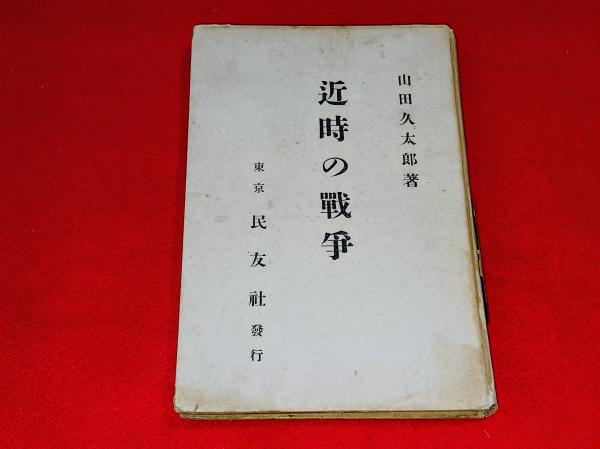 山田久太郎著
近時の戰爭
東京 民友社發行